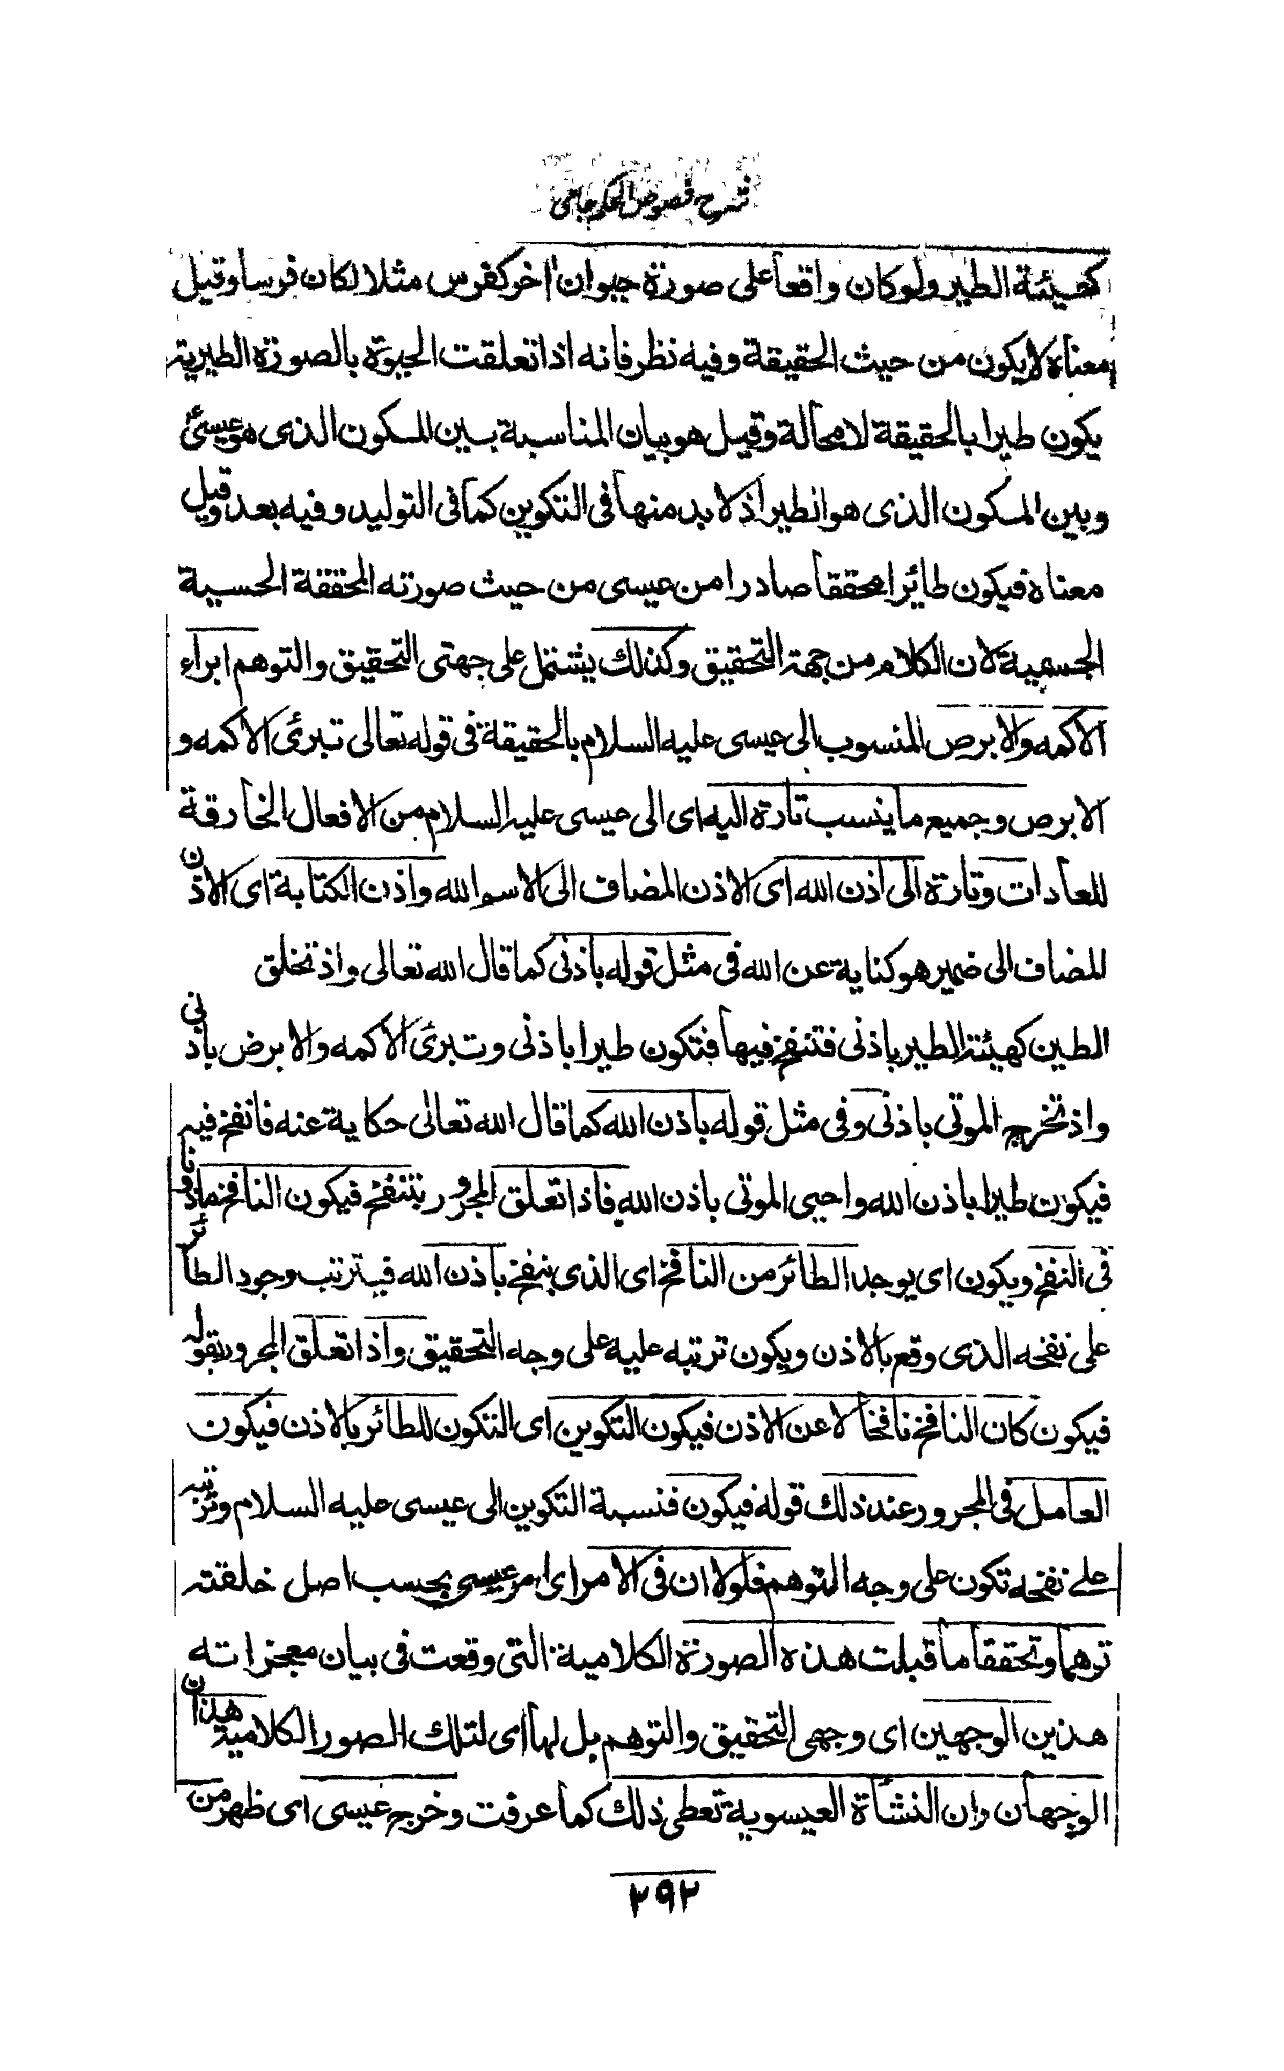 شرح فصوص الحكم جامی
كهيئة الطير ولوكان واقعا على صورة حيوان اخر كفرس مثلا لكان فرسا وقيل
معناه لا يكون من حيث الحقيقة وفيه نظر فانه اذا تعلقت الحيوة بالصورة الطيرية
يكون طيرا بالحقيقة لا محالة وقيل هو بيان المناسبة بين المكون الذى هو عيسى
وبين المكون الذى هو الطير اذ لا بد منها فى التكوين كما فى التوليد وفيه بعد وقيل
معناه فيكون طائرا محققا صادرا من عيسى من حيث صورته المحققة الحسية
الجسمية لان الكلام من جهة التحقيق وكذلك يشتمل على جهتى التحقيق والتوهم ابراء
الاكمه والابرص المنسوب الى عيسى عليه السلام بالحقيقة فى قوله تعالى تبرئ الاكمه و
الابرص وجميع ما ينسب تارة اليه اى الى عيسى عليه السلام من الافعال الخارقة
للعادات وتارة الى اذن الله اى الاذن المضاف الى الاسم الله واذن الكتابة اى الاذن
المضاف الى ضمير هو كناية عن الله فى مثل قوله باذنى كما قال الله تعالى واذ تخلق
الطين كهيئة الطير باذنى فتنفخ فيها فتكون طيرا باذنى وتبرئ الاكمه والابرص باذنى
واذ تخرج الموتى باذنى وفى مثل قوله باذن الله كما قال الله تعالى حكاية عنه فانفخ فيه
فيكون طيرا باذن الله واحيى الموتى باذن الله فاذا تعلق المجرور بتنفخ فيكون النافخ ماذونا
فى النفخ ويكون اى يوجد الطائر من النافخ اى الذى ينفخ باذن الله فيترتب وجود الطائر
على نفخه الذى وقع بالاذن ويكون ترتبه عليه على وجه التحقيق واذا تعلق المجرور بقوله
فيكون كان النافخ نافخا لا عن الاذن فيكون التكوين اى التكون للطائر بالاذن فيكون
العامل فى المجرور عند ذلك قوله فيكون فنسبة التكوين الى عيسى عليه السلام وترتبه
على نفخه تكون على وجه التوهم فلولا ان فى الامر اى امر عيسى بحسب اصل خلقته
توهما وتحققا ما قبلت هذه الصورة الكلامية التى وقعت فى بيان معجزاته
هذين الوجهين اى وجهى التحقيق والتوهم بل لها اى لتلك الصور الكلامية هذان
الوجهان وان النشأة العيسوية تعطى ذلك كما عرفت وخرج عيسى اى ظهر من
٢٩٢